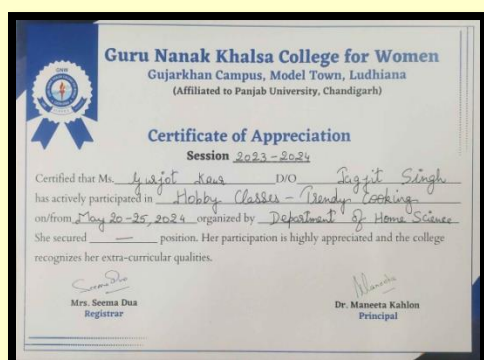 Guru Nanak Khalsa College for Women
Gujarkhan Campus, Model Town, Ludhiana
(Affiliated to Panjab University, Chandigarh)
Certificate of Appreciation
Session 2023-2024
Certified that Ms. Gurjot Kaur D/O Jagjit Singh
has actively participated in Hobby Classes - Trendy Cooking
on/from May 20-25, 2024 organized by Department of Home Science
She secured — position. Her participation is highly appreciated and the college
recognizes her extra-curricular qualities.
Mrs. Seema Dua
Registrar
Dr. Maneeta Kahlon
Principal